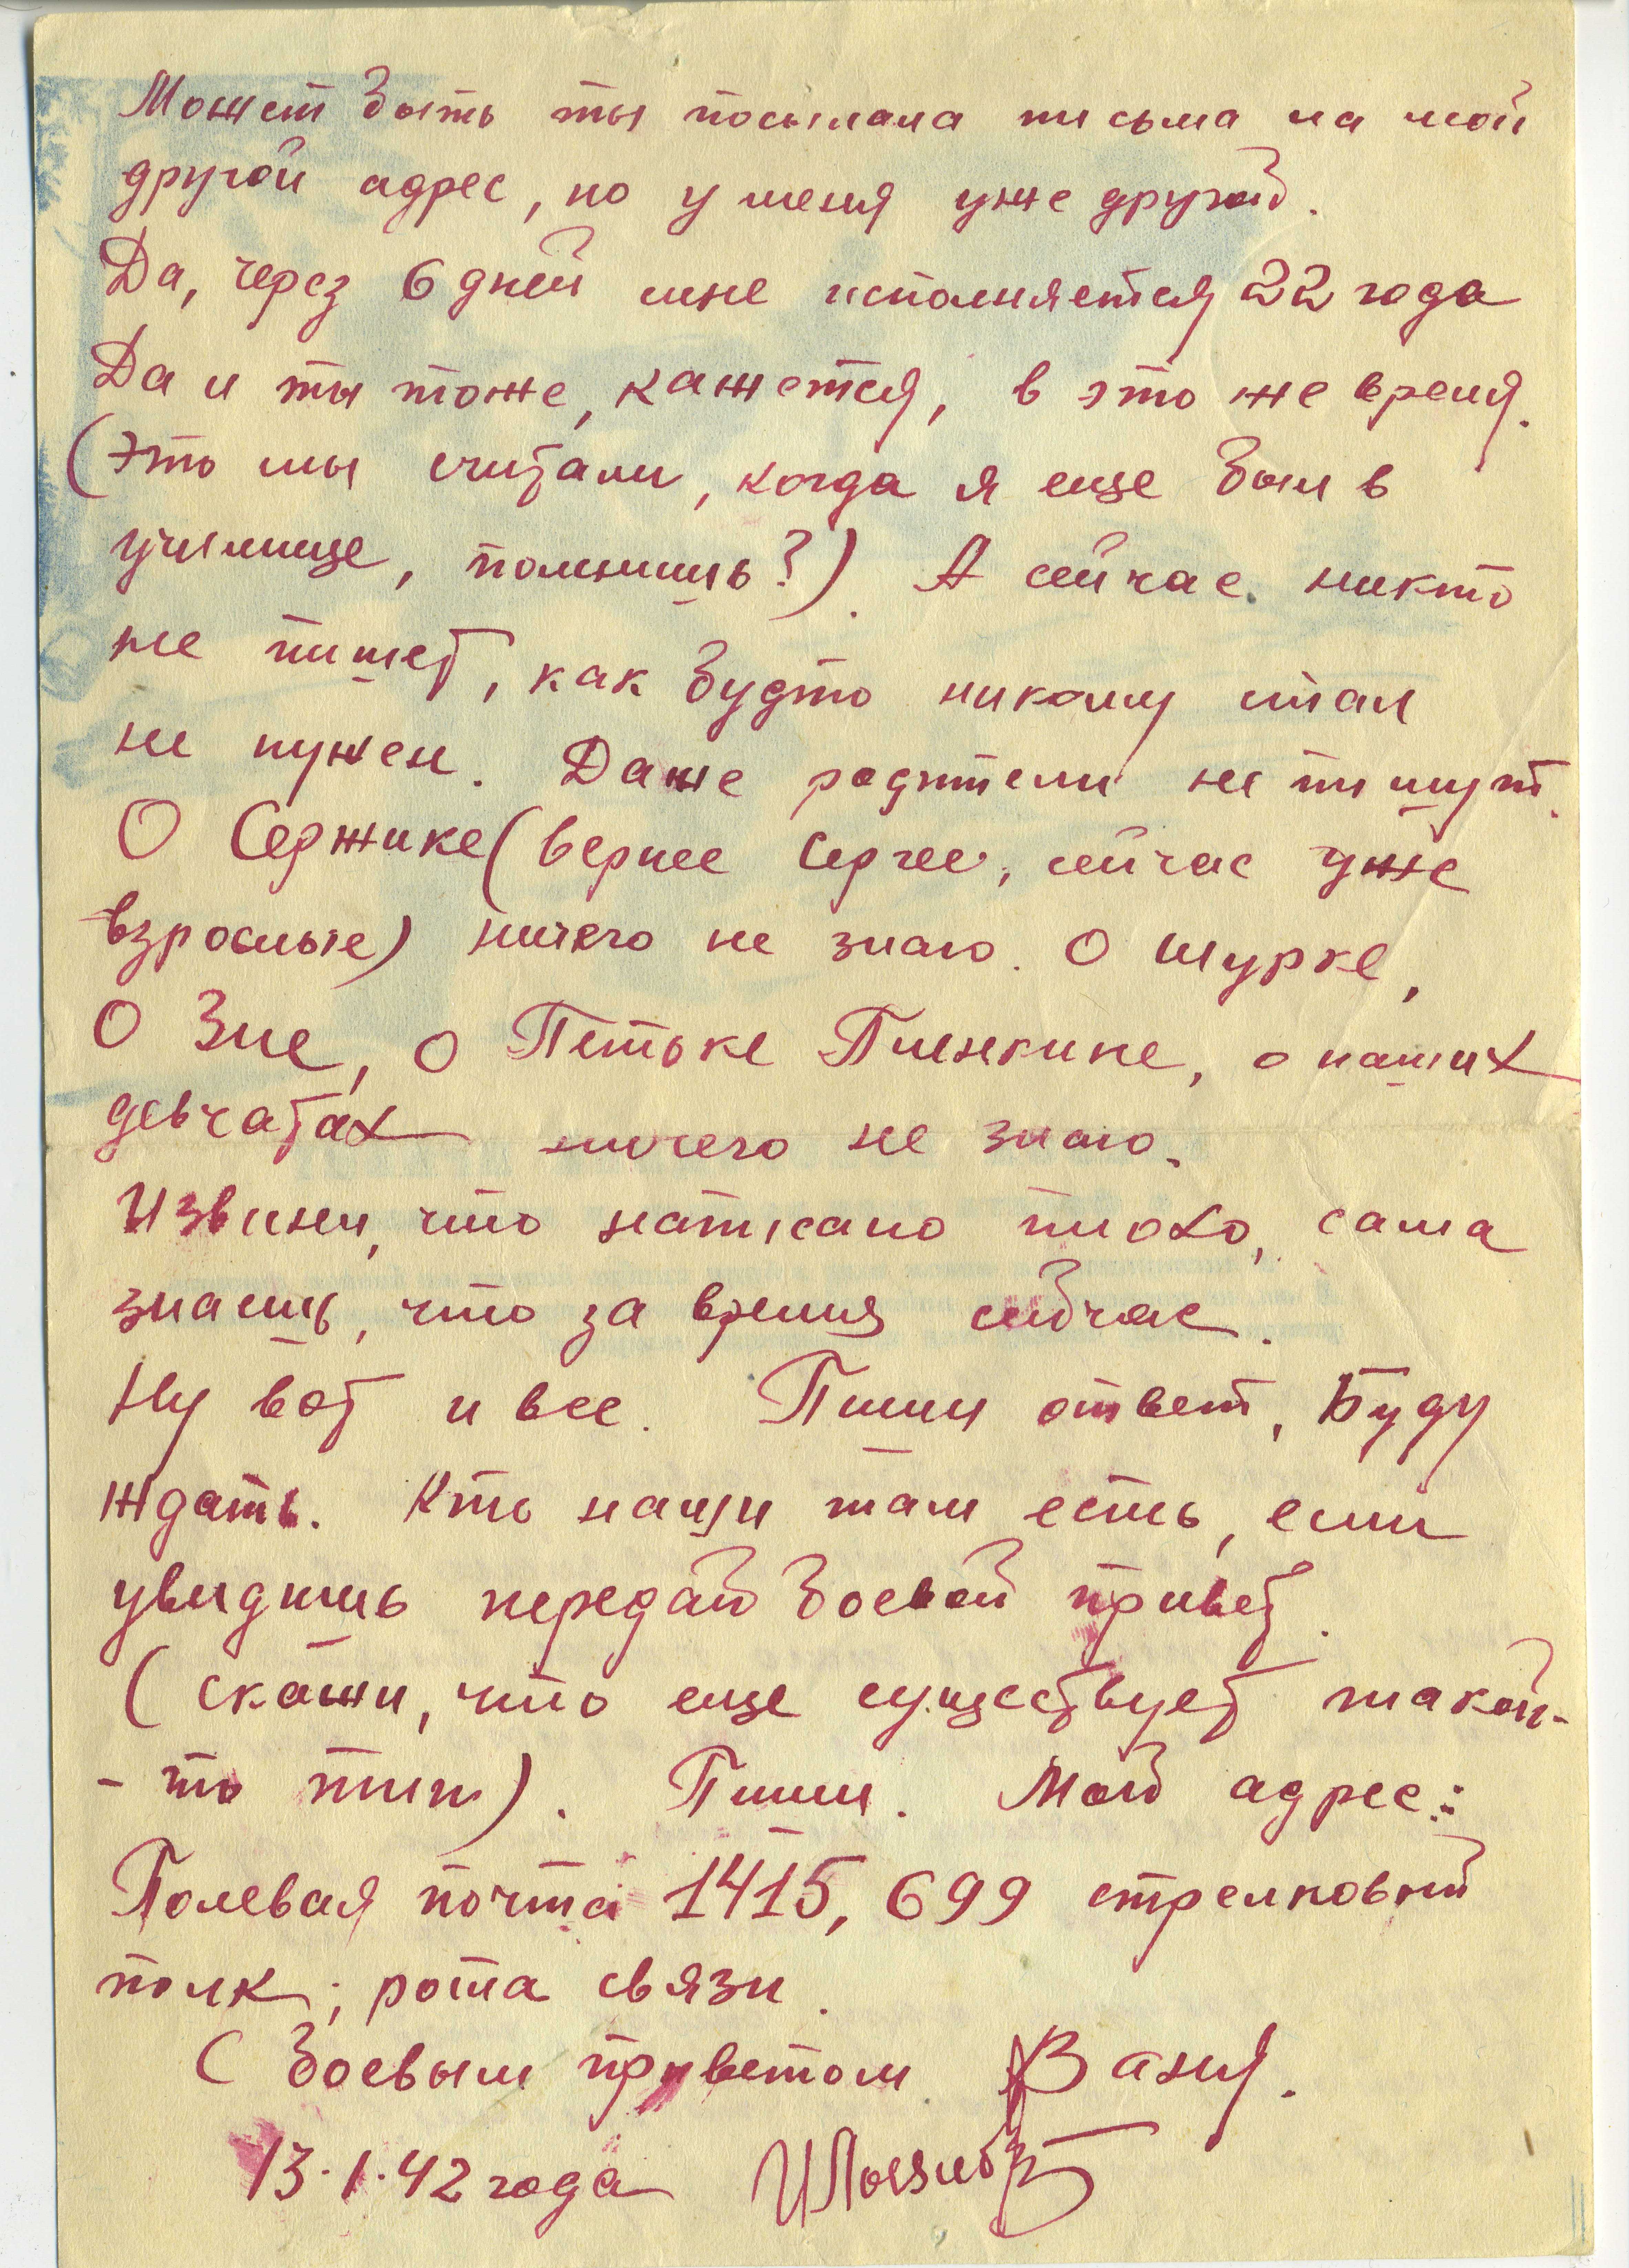 Может быть ты посылала письма на мой
другой адрес, но у меня уже другой.
Да, через 6 дней мне исполняется 22 года
Да и ты тоже, кажется, в это же время.
(Это мы считали, когда я еще был в
училище, помнишь?). А сейчас никто
не пишет, как будто никому стал
не нужен. Даже родители не пишут.
О Сержике (вернее Сергее, сейчас уже
взрослые) ничего не знаю. О Шурке,
О Зие, о Петьке Пленкине, о наших
девчатах ничего не знаю.
Извини, что написано плохо, сама
знаешь, что за время сейчас.
Ну вот и все. Пиши ответ, Буду
ждать. Кто наши там есть, если
увидишь передай боевой привет.
(скажи, что еще существует такой-
-то тип). Пиши. Мой адрес:
Полевая почта 1415, 699 стрелковый
полк; рота связи.
С боевым приветом Ваня.
13.1.42 года